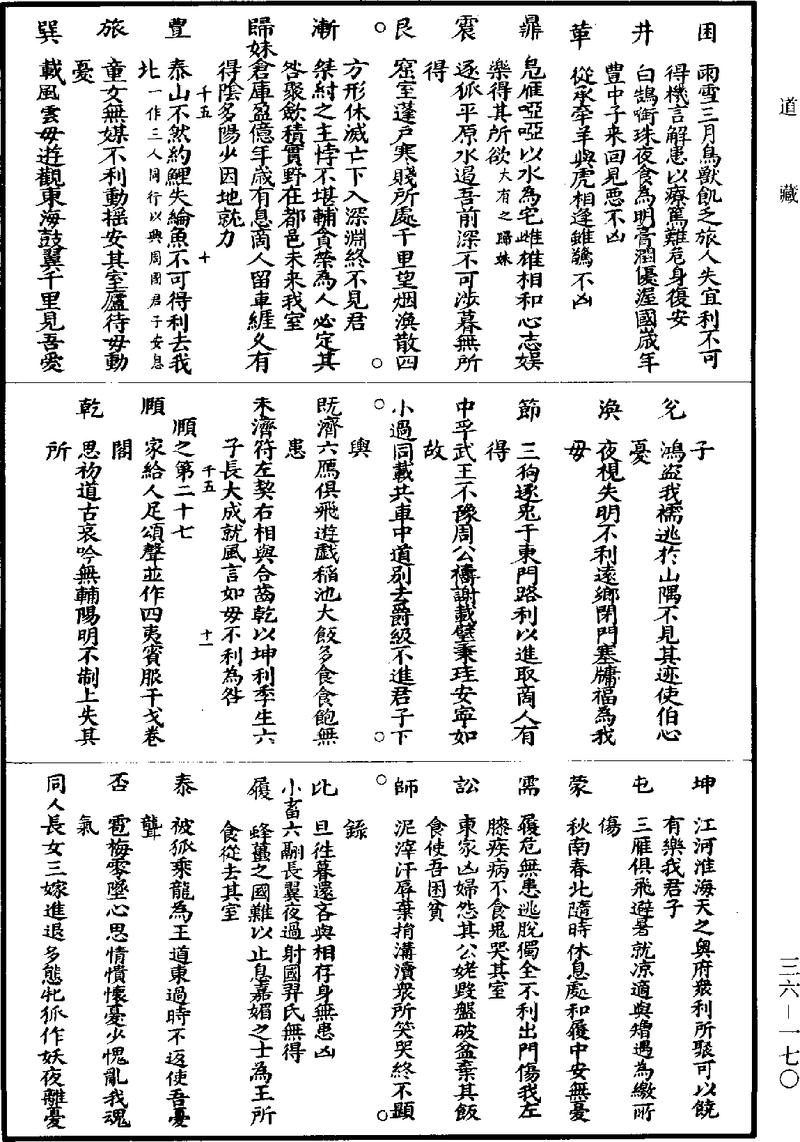 道藏
困　雨雪三月鳥獸飢乏旅人失宜利不可
得機言解患以療篤難危身復安
井　白鵠銜珠夜食為明膏潤優渥國歲年
豐中子来回見惡不凶
革　從承牽羊與虎相逢雖驚不凶
鼎　鳧雁啞啞以水為宅雌雄相和心志娛
樂得其所欲大有之歸妹
震　逐狐平原水遏吾前深不可涉暮無所
得
艮　窟室蓬戶寒賤所處千里望烟渙散四
○　方形休滅亡下入深淵終不見君　○
漸　桀紂之主悖不堪輔貪榮為人必定其
咎聚斂積實野在都邑未来我室
歸妹倉庫盈億年歲有息商人留車經久有
得陰多陽少因地就力
十五　十
豐　泰山不然約鯉失綸魚不可得利去我
北一作三人同行以興周國君子安息
旅　童女無媒不利動揺安其室廬待毋動
憂
巽　載風雲毋遊觀東海鼓翼千里見吾愛
子
兌　鴻盜我襦逃於山隅不見其迹使伯心
憂
渙　夜視失明不利遠鄉閉門塞牖福為我
母
節　三狗逐兎于東門路利以進取商人有
得
中孚武王不豫周公禱謝載璧秉珪安寧如
故
小過同載共車中道別去爵級不進君子下
○　輿　○
既濟六鴈俱飛遊戲稻池大飲多食食飽無
患
未濟符左契右相與合齒乾以坤利季生六
子長大成就風言如毋不利為咎
十五　十一
頤之第二十七
頤　家給人足頌聲並作四夷賓服干戈卷
閣
乾　思初道古哀吟無輔陽明不制上失其
所
坤　江河淮海天之奥府衆利所聚可以饒
有樂我君子
屯　三雁俱飛避暑就凉適與矰遇為繳所
傷
蒙　秋南春北隨時休息處和履中安無憂
需　履危無患逃脫獨全不利出門傷我左
膝疾病不食鬼哭其室
訟　東家凶婦怨其公姥毀盤破盆棄其飯
食使吾困貧
師　泥滓汙辱葉捐溝瀆衆所笑哭終不顯
○　錄　○
比　旦往暮還各與相存身無患凶
小畜六翮長翼夜過射國羿氏無得
履　蜂蠆之國難以止息嘉媚之士為王所
食從去其室
泰　被狐乘龍為王道東過時不返使吾憂
聾
否　雹梅零墜心思情憒懐憂少愧亂我魂
氣
同人長女三嫁進退多態牝狐作妖夜離憂
三六—一七〇